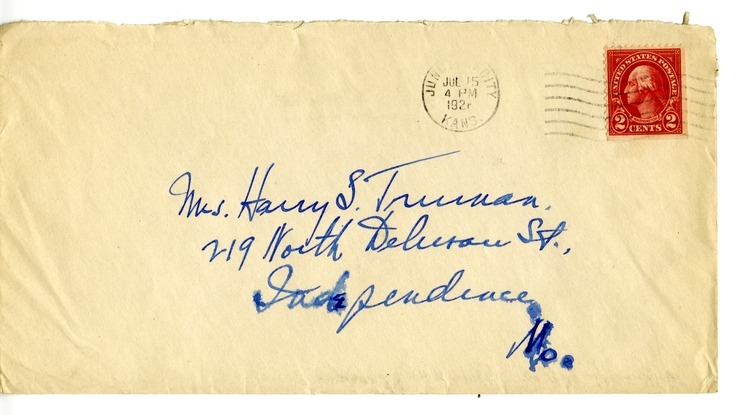 JUN CITY
JUL 15
4 PM
192
KANS.
UNITED STATES POSTAGE
2 CENTS 2
Mrs. Harry S. Truman.
219 North Delaware St.,
Independence
Mo.